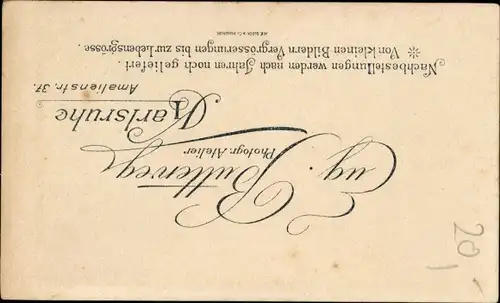 Eug. Butterweg
Photogr. Atelier
Karlsruhe
Amalienstr. 37.
Nachbestellungen werden nach Jahren noch geliefert.
Von kleinen Bildern Vergrösserungen bis zur Lebensgrösse.
20